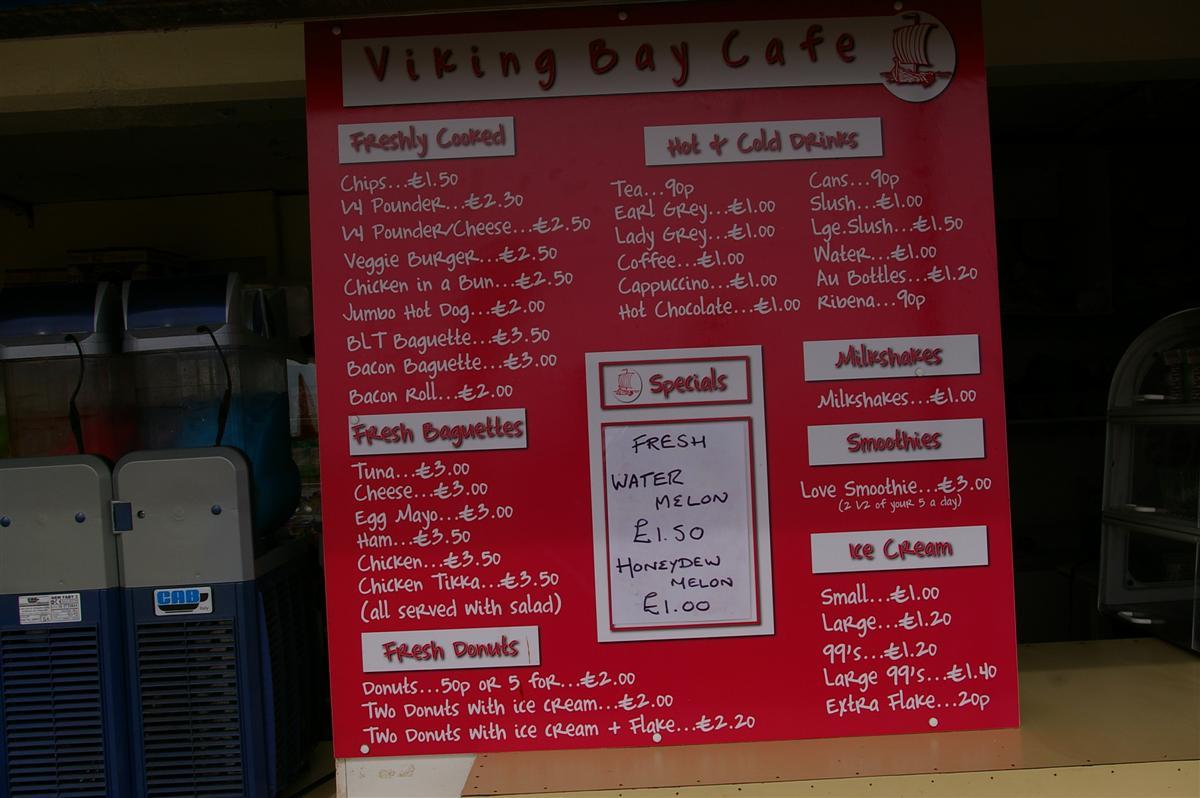 Viking Bay Cafe
Freshly Cooked
Chips...€1.50
1/4 Pounder...€2.30
1/4 Pounder/Cheese...€2.50
Veggie Burger...€2.50
Chicken in a Bun...€2.50
Jumbo Hot Dog...€2.00
BLT Baguette...€3.50
Bacon Baguette...€3.00
Bacon Roll...€2.00
Fresh Baguettes
Tuna...€3.00
Cheese...€3.00
Egg Mayo...€3.00
Ham...€3.50
Chicken...€3.50
Chicken Tikka...€3.50
(all served with salad)
Fresh Donuts
Donuts...50p or 5 for...€2.00
Two Donuts with ice cream...€2.00
Two Donuts with ice cream + Flake...€2.20
Hot + Cold Drinks
Tea...90p
Earl Grey...€1.00
Lady Grey...€1.00
Coffee...€1.00
Cappuccino...€1.00
Hot Chocolate...€1.00
Cans...90p
Slush...€1.00
Lge.Slush...€1.50
Water...€1.00
Au Bottles...€1.20
Ribena...90p
Specials
FRESH
WATER
MELON
£1.50
HONEYDEW
MELON
£1.00
Milkshakes
Milkshakes...€1.00
Smoothies
Love Smoothie...€3.00
(2 1/2 of your 5 a day)
Ice Cream
Small...€1.00
Large...€1.20
99's...€1.20
Large 99's...€1.40
Extra Flake...20p
CAB